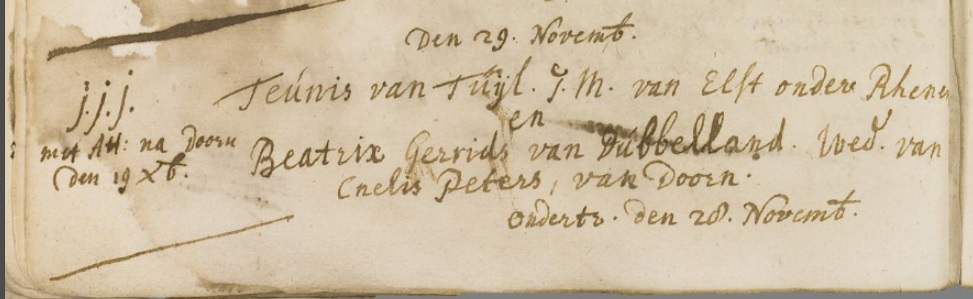 Den 29. Novemb.
j. j. j.
met Att: na Doorn
den 19 Xb.
Teúnis van Túÿl. J. M. van Elst onder Rhenen
en
Beatrix Gerrids van Dúbbelland. Wed. van
Cnelis Peters, van Doorn.
Ondertr. den 28. Novemb.